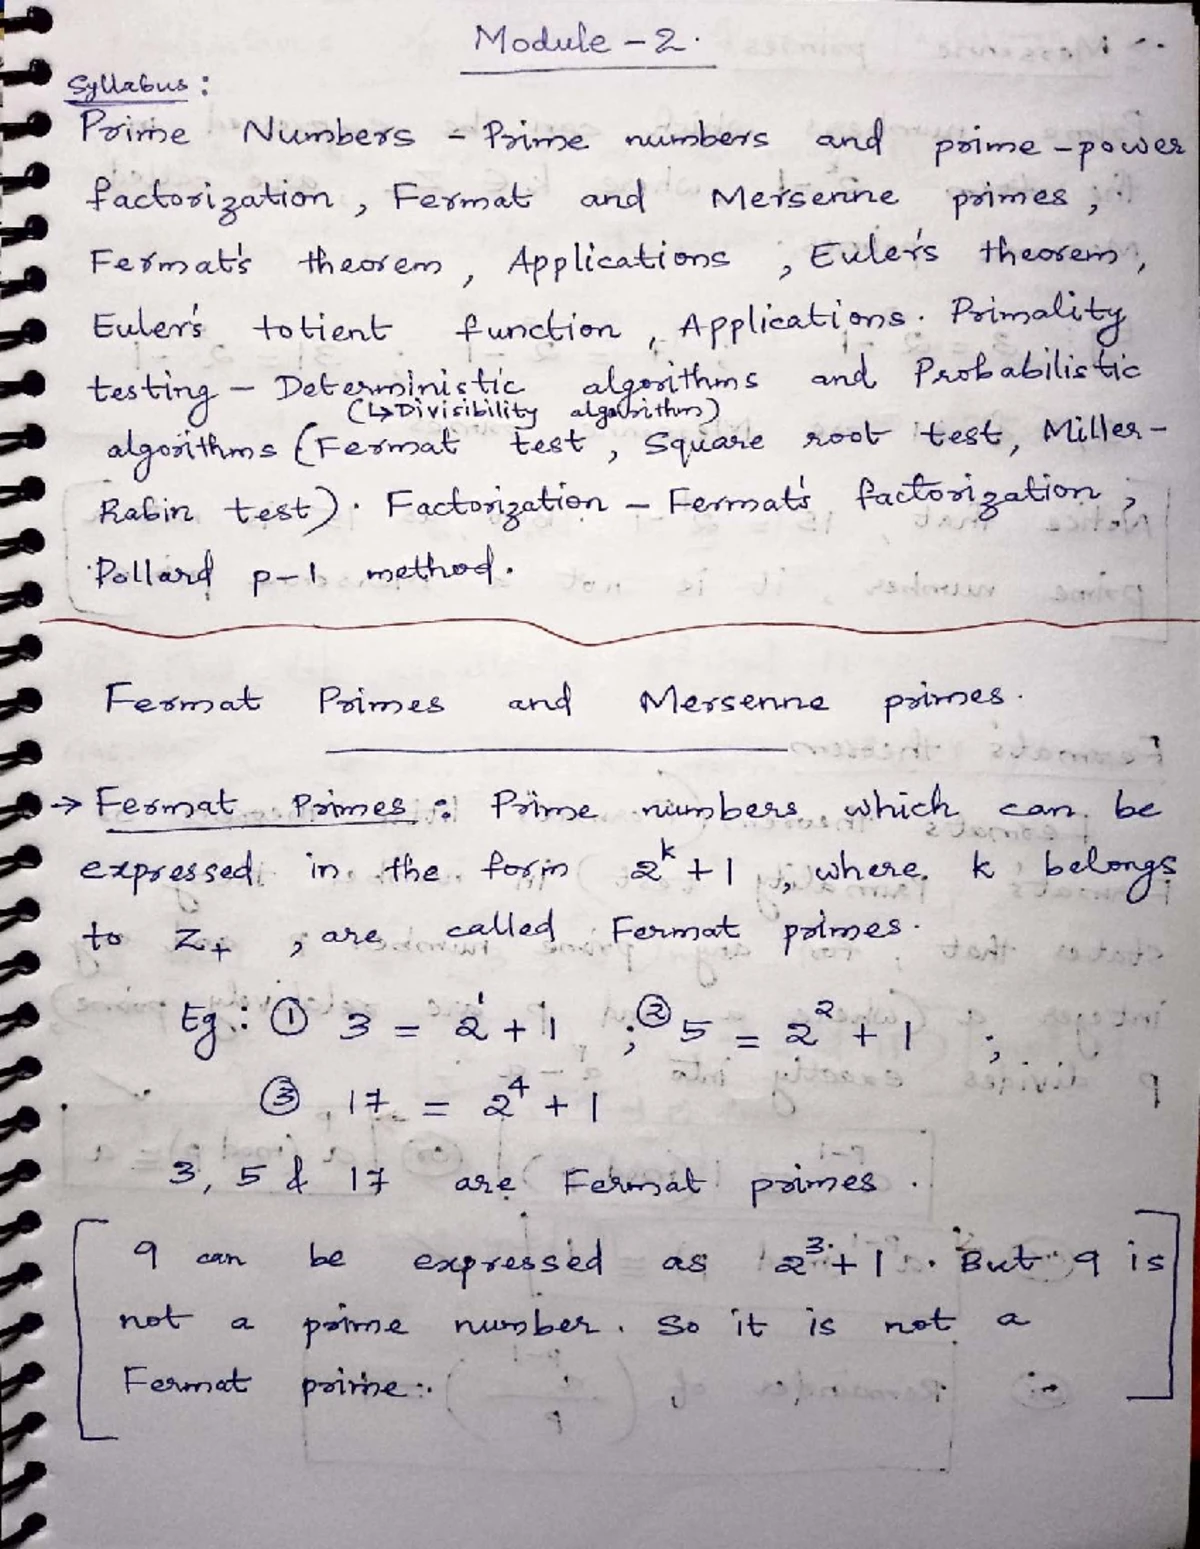 Module - 2.
Syllabus :
Prime Numbers - Prime numbers and prime-power
factorization, Fermat and Mersenne primes,
Fermat's theorem, Applications, Euler's theorem,
Euler's totient function, Applications. Primality
testing - Deterministic algorithms and Probabilistic
(↳Divisibility algorithm)
algorithms (Fermat test, Square root test, Miller-
Rabin test). Factorization - Fermat's factorization,
Pollard p-1 method.
Fermat Primes and Mersenne primes.
→ Fermat Primes : Prime numbers which can be
expressed in the form 2^k + 1, where k belongs
to Z+, are called Fermat primes.
Eg: ① 3 = 2^1 + 1 ; ② 5 = 2^2 + 1 ;
③ 17 = 2^4 + 1
3, 5 & 17 are Fermat primes.
[ 9 can be expressed as 2^3 + 1. But 9 is
not a prime number. So it is not a
Fermat prime. ]